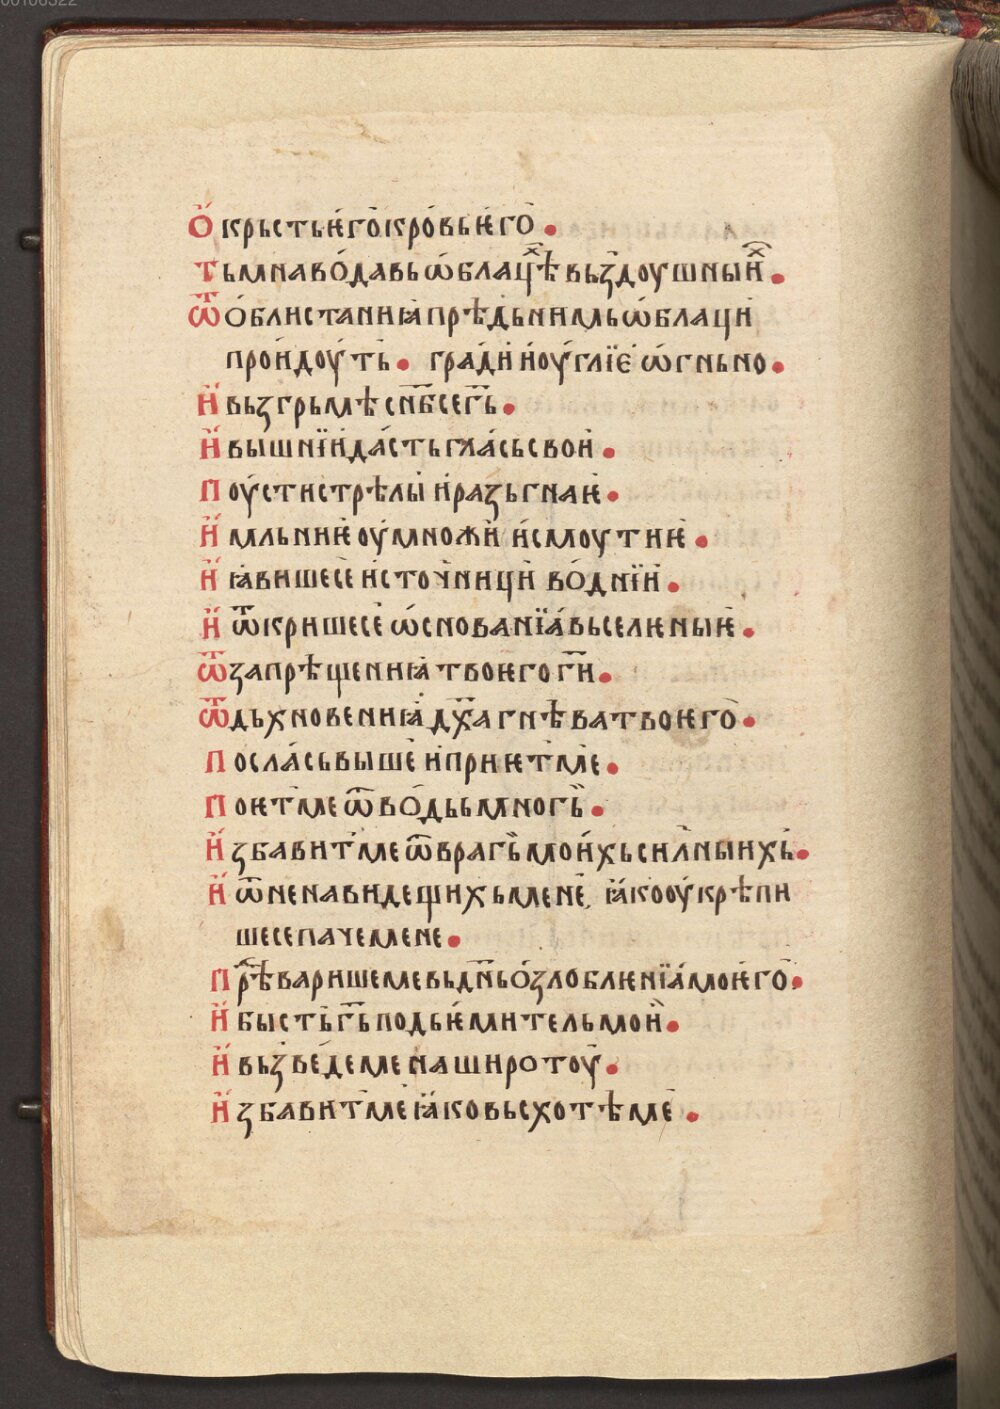 00106322
Ѻ҆крьсть ѥ҆го̀ кровь ѥ҆го̀ •
тьмна вода вь ѡ҆блацѣⷯ вьздоушныиⷯ •
Ѿ ѻ҆блистаниꙗ прѣдь нимь ѡ҆блаци
проидоуть • гради и҆ оу҆глїе ѡ҆гньно •
И҆ вьзгрьмѣ с нб҃се гь҃ •
И҆ вышнїи дасть глась свои •
Поусти стрѣлы и҆ разьгна ѥ •
И҆ мльниѥ оу҆множи и҆ смоути ѥ •
И҆ ꙗвише се и҆сточници воднїи •
И҆ ѿкрише се ѡ҆снованїа вьселѥныѥ •
Ѿ запрѣщениꙗ твоѥго ги҃ •
Ѿ дьхновениꙗ дх҃а гнѣва твоѥго •
Посла сь выше и҆ приѥт ме •
Поѥт ме ѿ водьь многь •
И҆збавит ме ѿ врагь моихь силныихь •
И҆ ѿ ненавидещихь мене, ꙗко оу҆крѣпи
ше се паче мене •
Прѣварише ме вь дн҃ь ѻ҆злоблѥнїа моѥго •
И҆ бысть гь҃ подьѥмитель мои •
И҆ вьзведе ме на широтоу •
И҆збавит ме ꙗко вьсхотѣ ме •